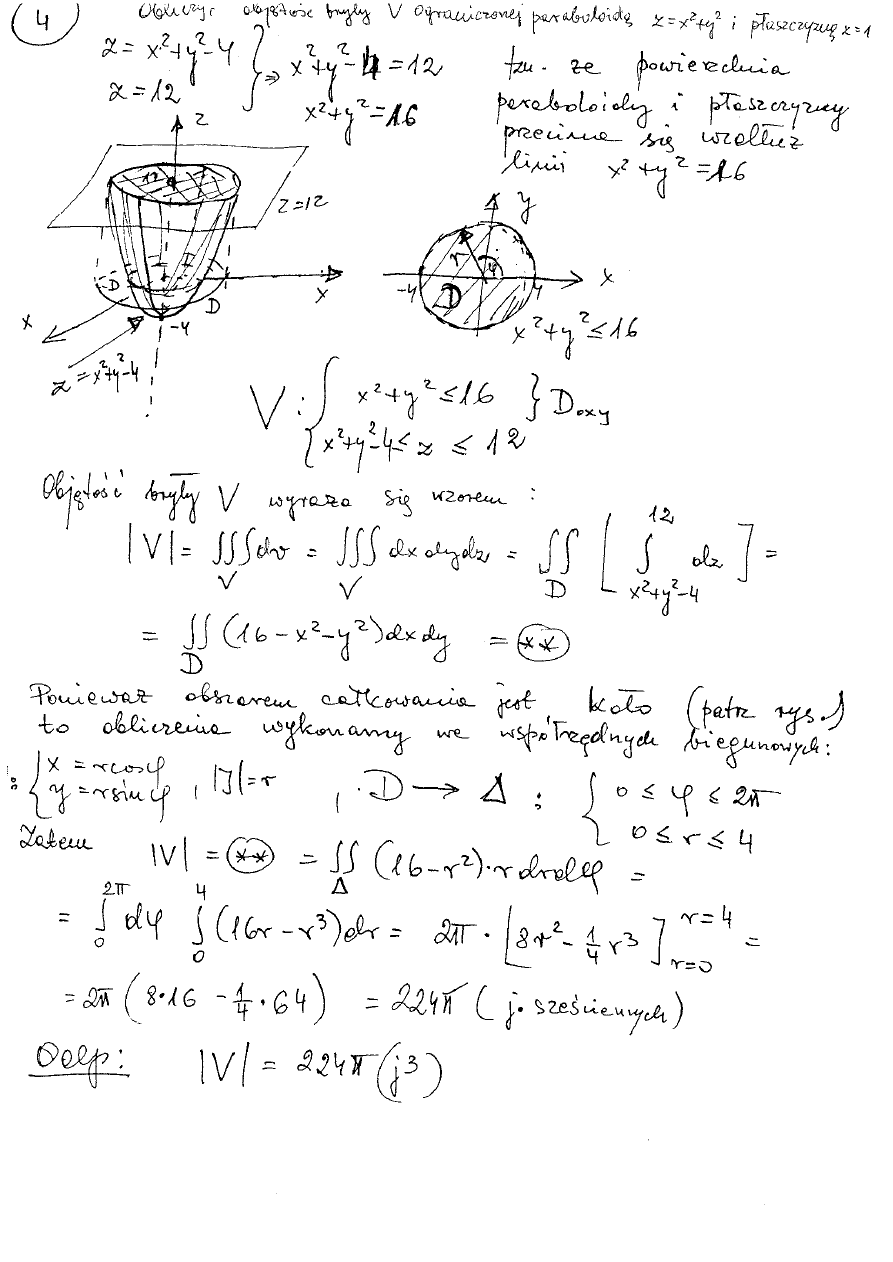 4 Obliczyć objętość bryły V ograniczonej paraboloidą z=x²+y² i płaszczyzną z=1
z = x²+y²-4
z = 12
} ⇒ x²+y²-4 = 12
x²+y² = 16
tzn. że powierzchnia
paraboloidy i płaszczyzny
przecina się wzdłuż
linii x²+y² = 16
z
12
z=12
D D
x
x
-4
z = x²+y²-4
y
r
-4 D 4
x
x²+y² ≤ 16
V: { x²+y² ≤ 16 } D₀ₓᵧ
x²+y²-4 ≤ z ≤ 12
Objętość bryły V wyraża się wzorem :
|V| = ∭_V dv = ∭_V dxdydz = ∬_D [ ∫_{x²+y²-4}^{12} dz ] =
= ∬_D (16-x²-y²)dxdy = (**)
Ponieważ obszarem całkowania jest koło (patrz rys.)
to obliczenia wykonamy we współrzędnych biegunowych:
: { x = rcosφ
y = rsinφ , |J|=r , D → Δ : { 0 ≤ φ ≤ 2π
0 ≤ r ≤ 4
Zatem |V| = (**) = ∬_Δ (16-r²)·r drdφ =
= ∫_0^{2π} dφ ∫_0^4 (16r-r³)dr = 2π · [8r² - 1/4 r³]_{r=0}^{r=4} =
= 2π (8·16 - 1/4 · 64) = 224π (j. sześciennych)
Odp: |V| = 224π (j³)